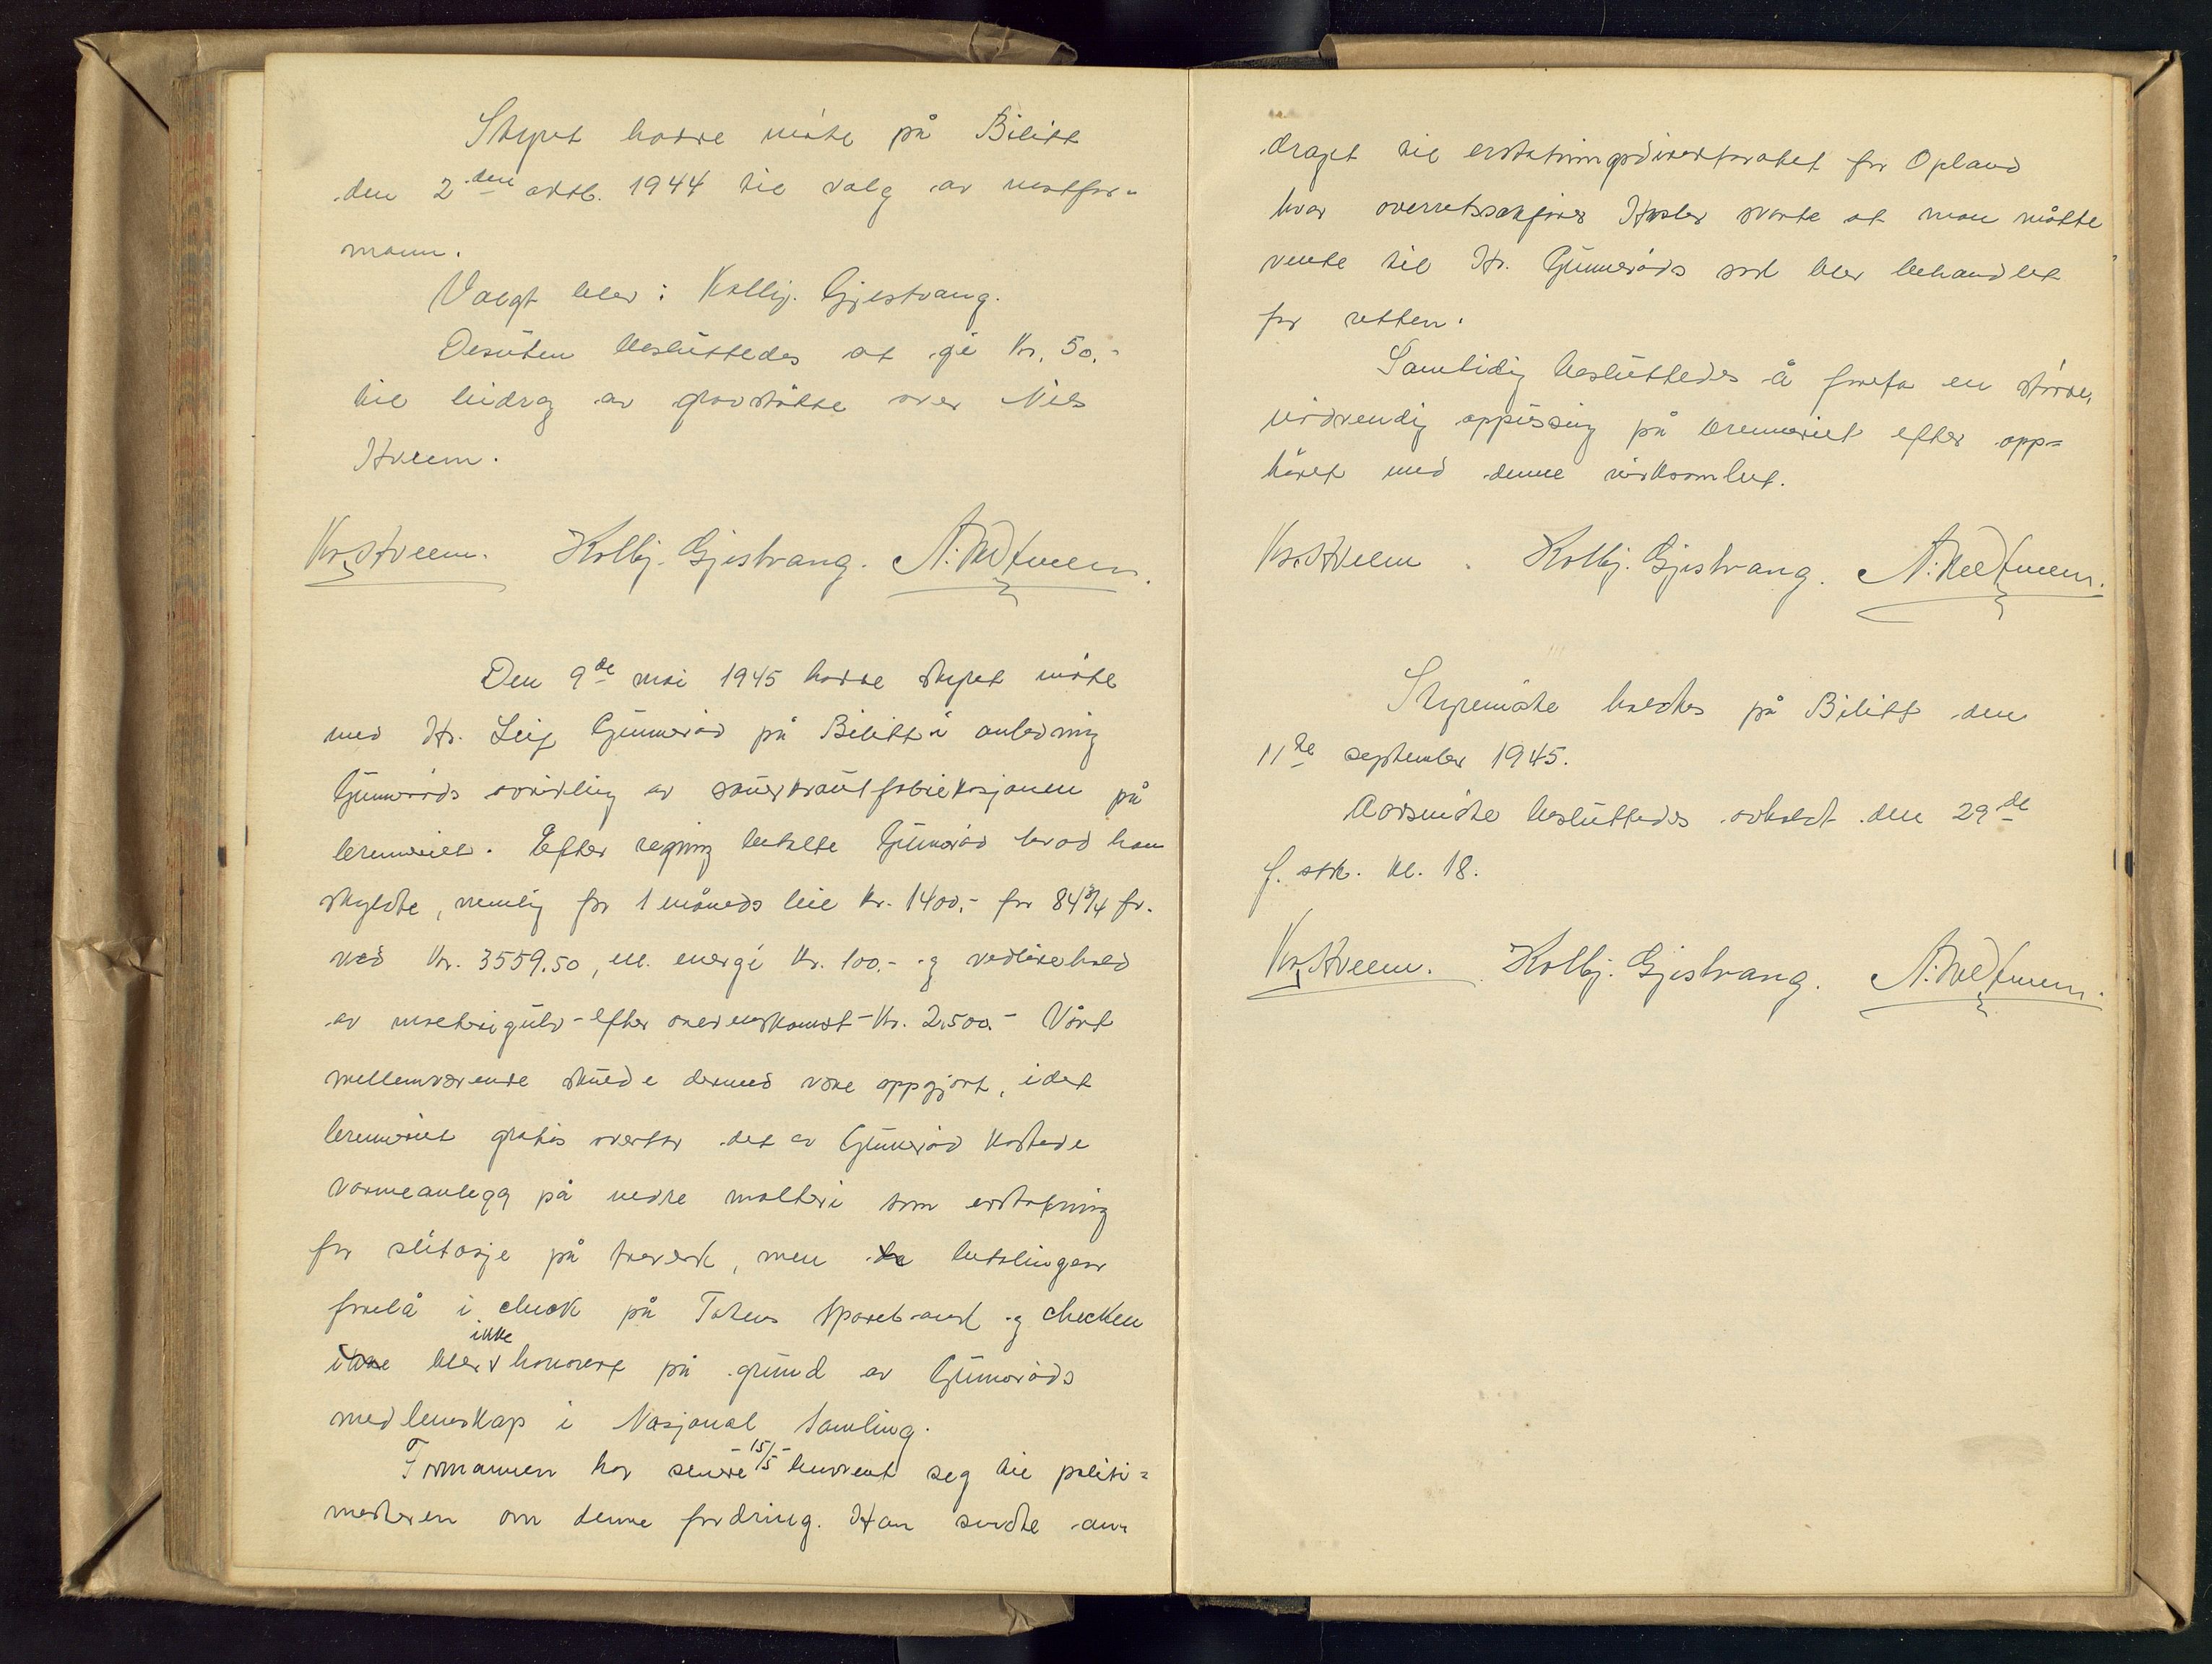 Styret hadde møte på Bilitt
den 2den oktb. 1944 til valg av nestfor-
mann.
Valgt blev: Kolbj. Gjestvang.
Desuten besluttedes at gi Kr. 50.-
til bidrag av gravstøtte over Nils
Hveem.
Kr. Hveem. Kolbj. Gjestvang. N. Nedtveem.
Den 9de mai 1945 hadde styret møte
med Hr. Leif Gunnerød på Bilitt i anledning
Gunnerøds avvikling av sauerkrautfabrikasjonen på
brenneriet. Efter regning betalte Gunnerød hvad han
skyldte, nemlig for 1 måneds leie kr. 1400,- for 84 3/4 fv.
ved Kr. 3559.50, el. energi Kr. 100.- og vedlikehold
av malterigulv - efter overenskomst - Kr. 2.500.- Vårt
mellemværende skulde dermed være oppgjort, idet
brenneriet gratis overtar det av Gunnerød kostede
varmeanlegg på nedre malteri som erstatning
for slitasje på treverk, men de betalingen
forelå i check på Totens Sparebank og checken
ikke blev ikke honorert på grund av Gunnerøds
medlemskap i Nasjonal Samling.
Formannen har senere - 15/5 - henvendt seg til politi-
mesteren om denne fordring. Han sendte an-
draget til erstatningsdirektoratet for Opland
hvor overretssakfører Hasler svarte at man måtte
vente til Hr. Gunnerøds sak blev behandlet
for retten.
Samtidig besluttedes å foreta en større,
nødvendig oppussing på brenneriet efter opp-
høret med denne virksomhet.
Kr. Hveem. Kolbj. Gjestvang. N. Nedtveem.
Styremøte holdtes på Bilitt den
11te september 1945.
Aarsmøte besluttedes avholdt den 29de
f. stk. kl. 18.
Kr. Hveem. Kolbj. Gjestvang. N. Nedtveem.